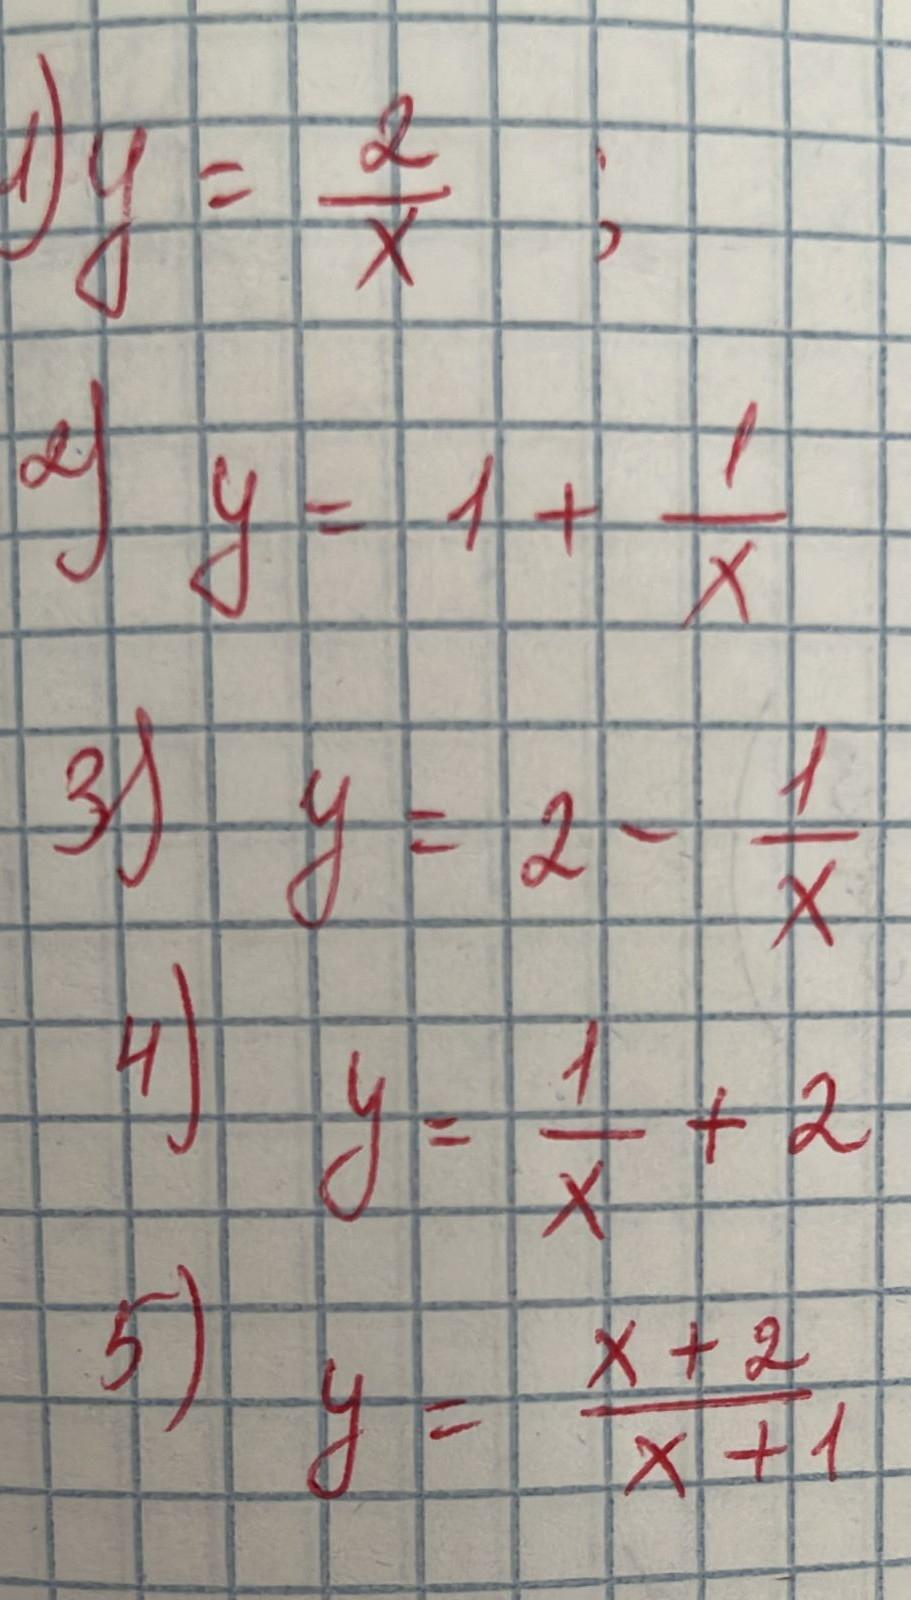 1) y = 2/x ;
2) y = 1 + 1/x
3) y = 2 - 1/x
4) y = 1/x + 2
5) y = (x + 2)/(x + 1)